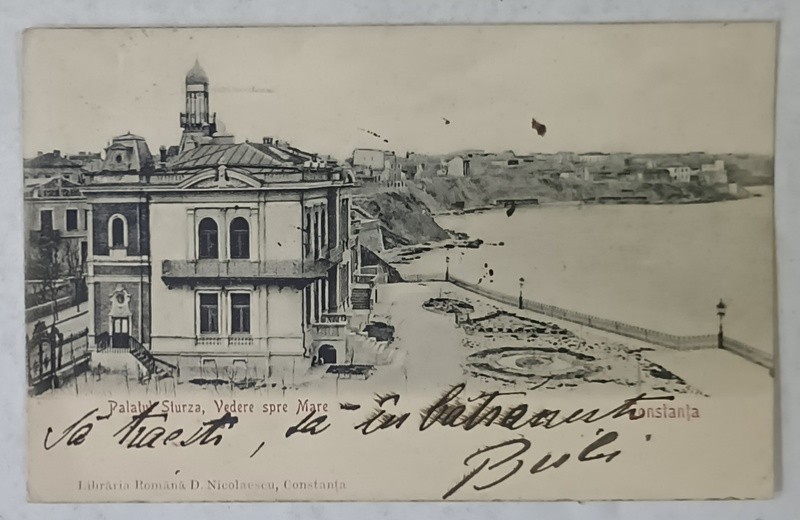 Palatul Sturza, Vedere spre Mare
Constanța
Să traesti, sa îmbătranesti
Bubi
Librăria Română D. Nicolaescu, Constanța